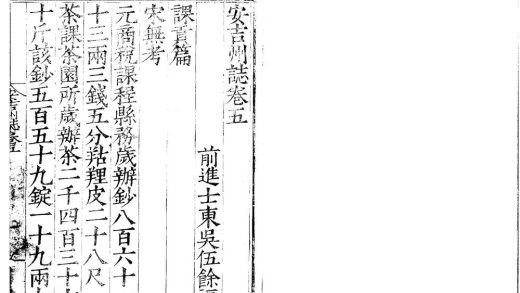 安吉州誌卷五
前進士東吳伍餘
課貢篇
宋無考
元商稅課程縣務歲辦鈔八百六十
十三兩三錢五分䍩𦍕皮二十八尺
茶課茶園所歲辦茶二千四百三十
十斤該鈔五百五十九錠一十九兩